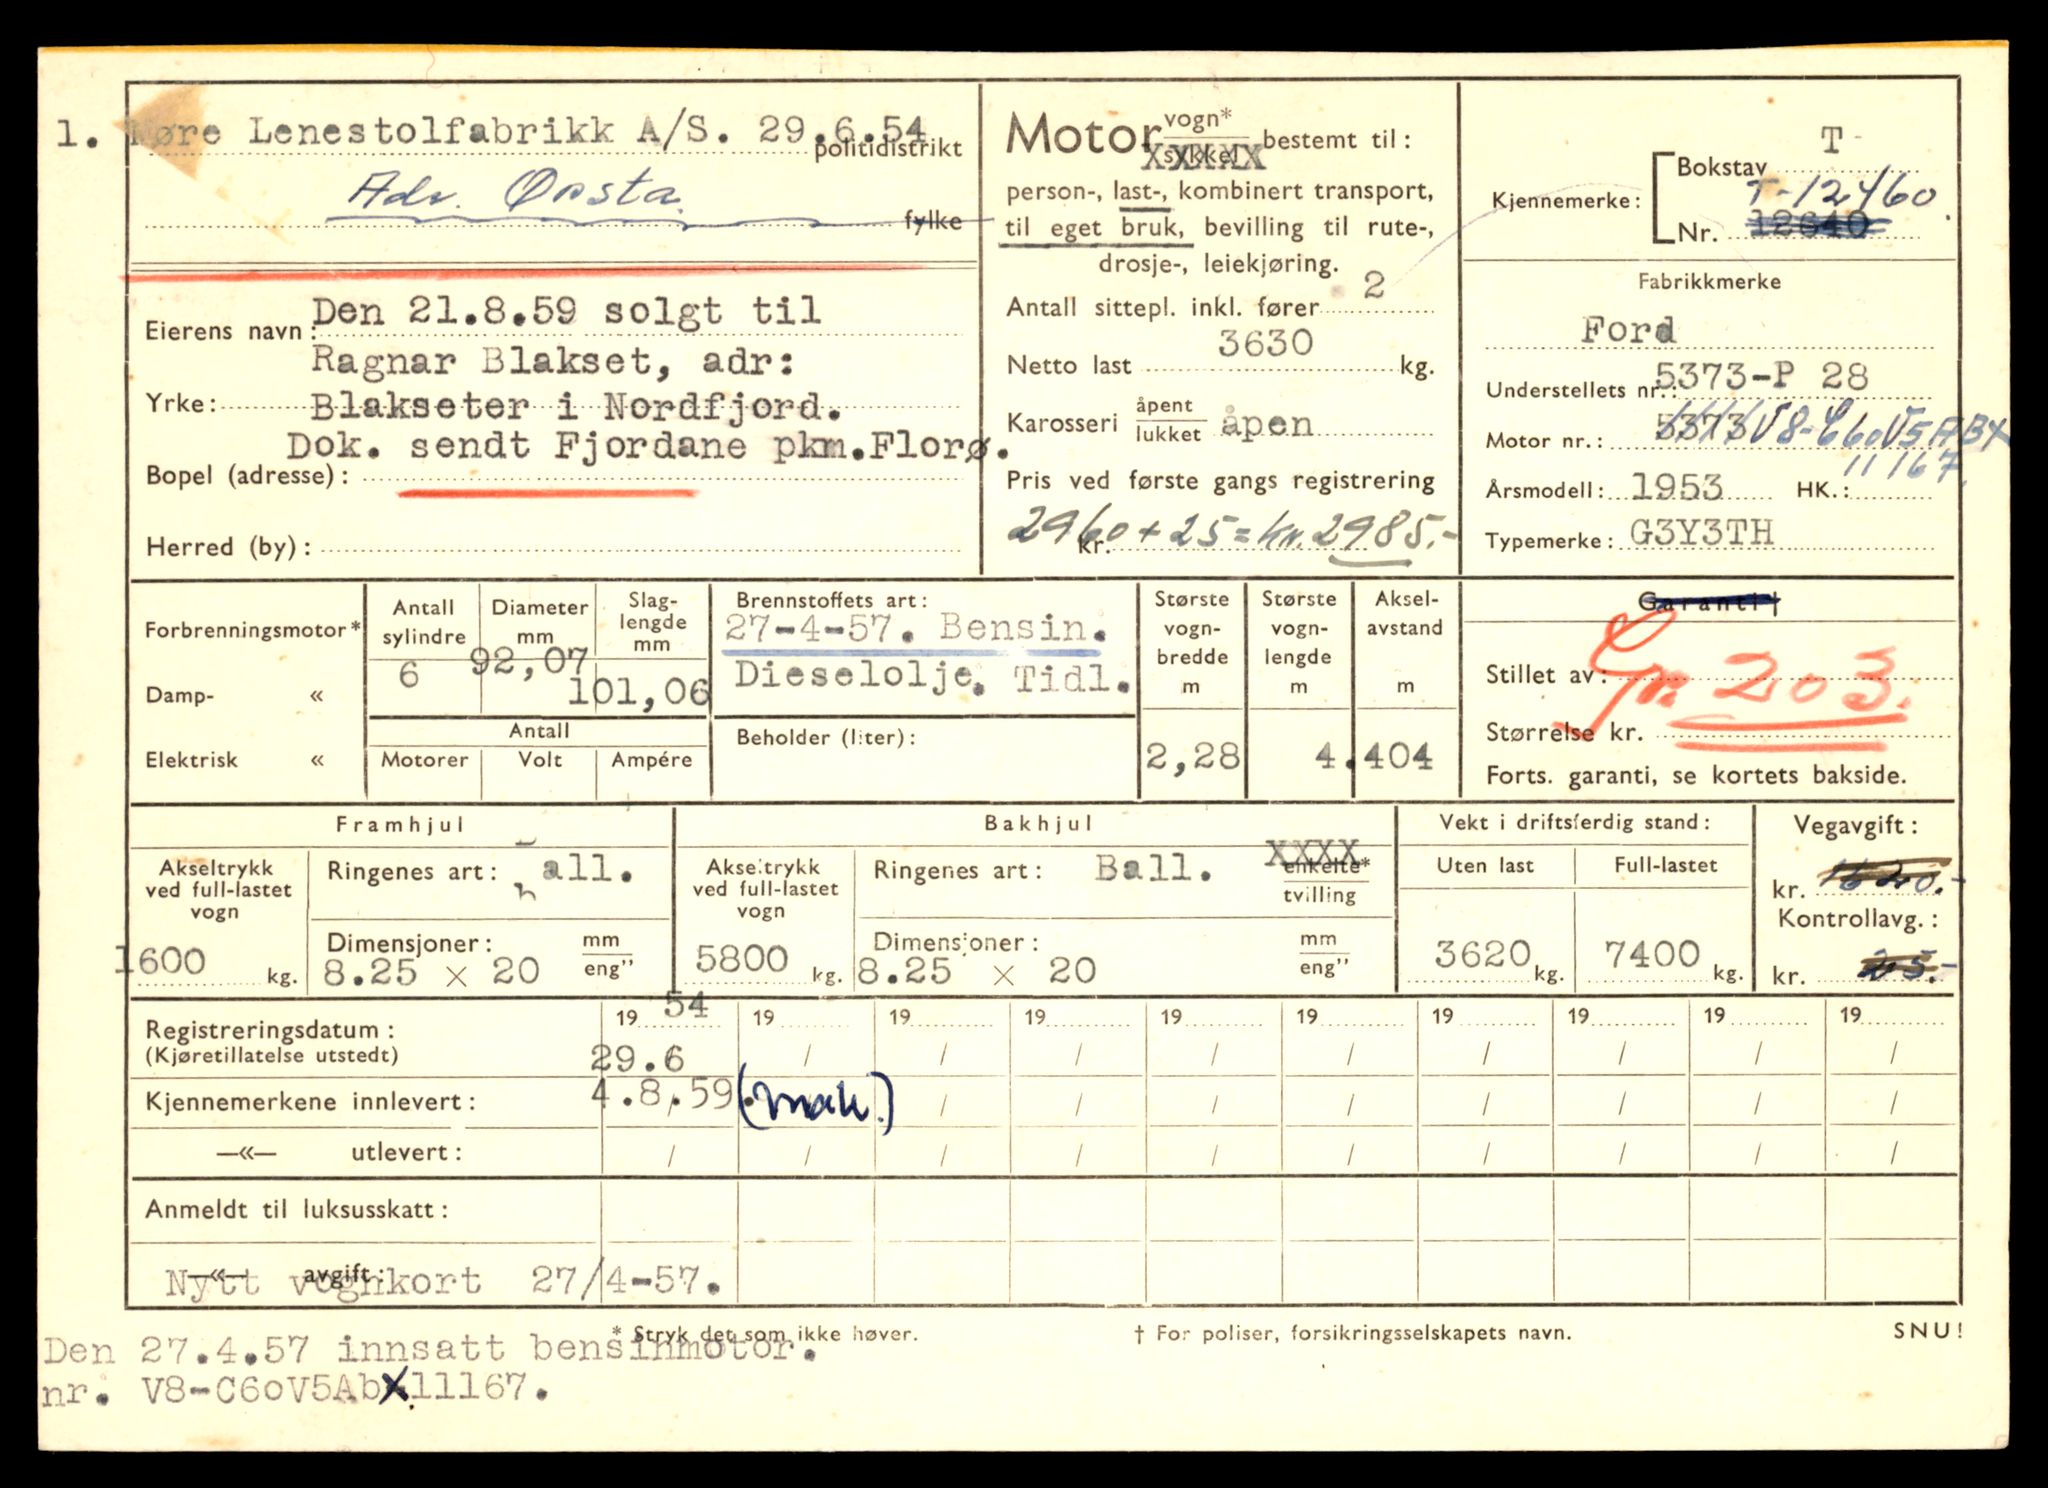 1. Møre Lenestolfabrikk A/S. 29.6.54
politidistrikt
Adr. Ørsta.
fylke
Eierens navn: Den 21.8.59 solgt til
Ragnar Blakset, adr:
Yrke: Blakseter i Nordfjord.
Dok. sendt Fjordane pkm.Florø.
Bopel (adresse):
Herred (by):
Motor vogn* sykkel XXXXX bestemt til:
person-, last-, kombinert transport,
til eget bruk, bevilling til rute-,
drosje-, leiekjøring.
Antall sittepl. inkl. fører 2
Netto last 3630 kg.
Karosseri åpent lukket åpen
Pris ved første gangs registrering
kr. 2960 + 25 = kr. 2985.-
Kjennemerke: Bokstav T
T-12460.
Nr. 12640
Fabrikkmerke
Ford
Understellets nr.: 5373-P 28
Motor nr.: 5373 V8-C60V5ABX
11167.
Årsmodell: 1953 HK.:
Typemerke: G3Y3TH
Forbrenningsmotor*
Damp- «
Elektrisk «
Antall sylindre
6
Diameter mm
92,07
Slag-lengde mm
101,06
Antall
Motorer Volt Ampére
Brennstoffets art:
27-4-57. Bensin.
Dieselolje. Tidl.
Beholder (liter):
Største vogn-bredde m
2,28
Største vogn-lengde m
Aksel-avstand m
4.404
Garanti†
Stillet av: Gr 203.
Størrelse kr.
Forts. garanti, se kortets bakside.
Framhjul
Akseltrykk ved full-lastet vogn
1600 kg.
Ringenes art: all.
Dimensjoner: mm eng"
8.25 × 20
Bakhjul
Akseltrykk ved full-lastet vogn
5800 kg.
Ringenes art: Ball. XXXX enkelte* tvilling
Dimensjoner: mm eng"
8.25 × 20
Vekt i driftsferdig stand:
Uten last Full-lastet
3620 kg. 7400 kg.
Vegavgift:
kr. 1620.-
Kontrollavg.:
kr. 25.-
Registreringsdatum: 19 54 19 19 19 19 19 19 19 19 19
(Kjøretillatelse utstedt) 29.6 / / / / / / / / /
Kjennemerkene innlevert: 4.8.59. (mak.) / / / / / / / /
—«— utlevert: / / / / / / / / / /
Anmeldt til luksusskatt:
—«— avgift:
Nytt vognkort 27/4-57.
* Stryk det som ikke høver. † For poliser, forsikringsselskapets navn. SNU!
Den 27.4.57 innsatt bensinmotor.
nr. V8-C6oV5AbX11167.